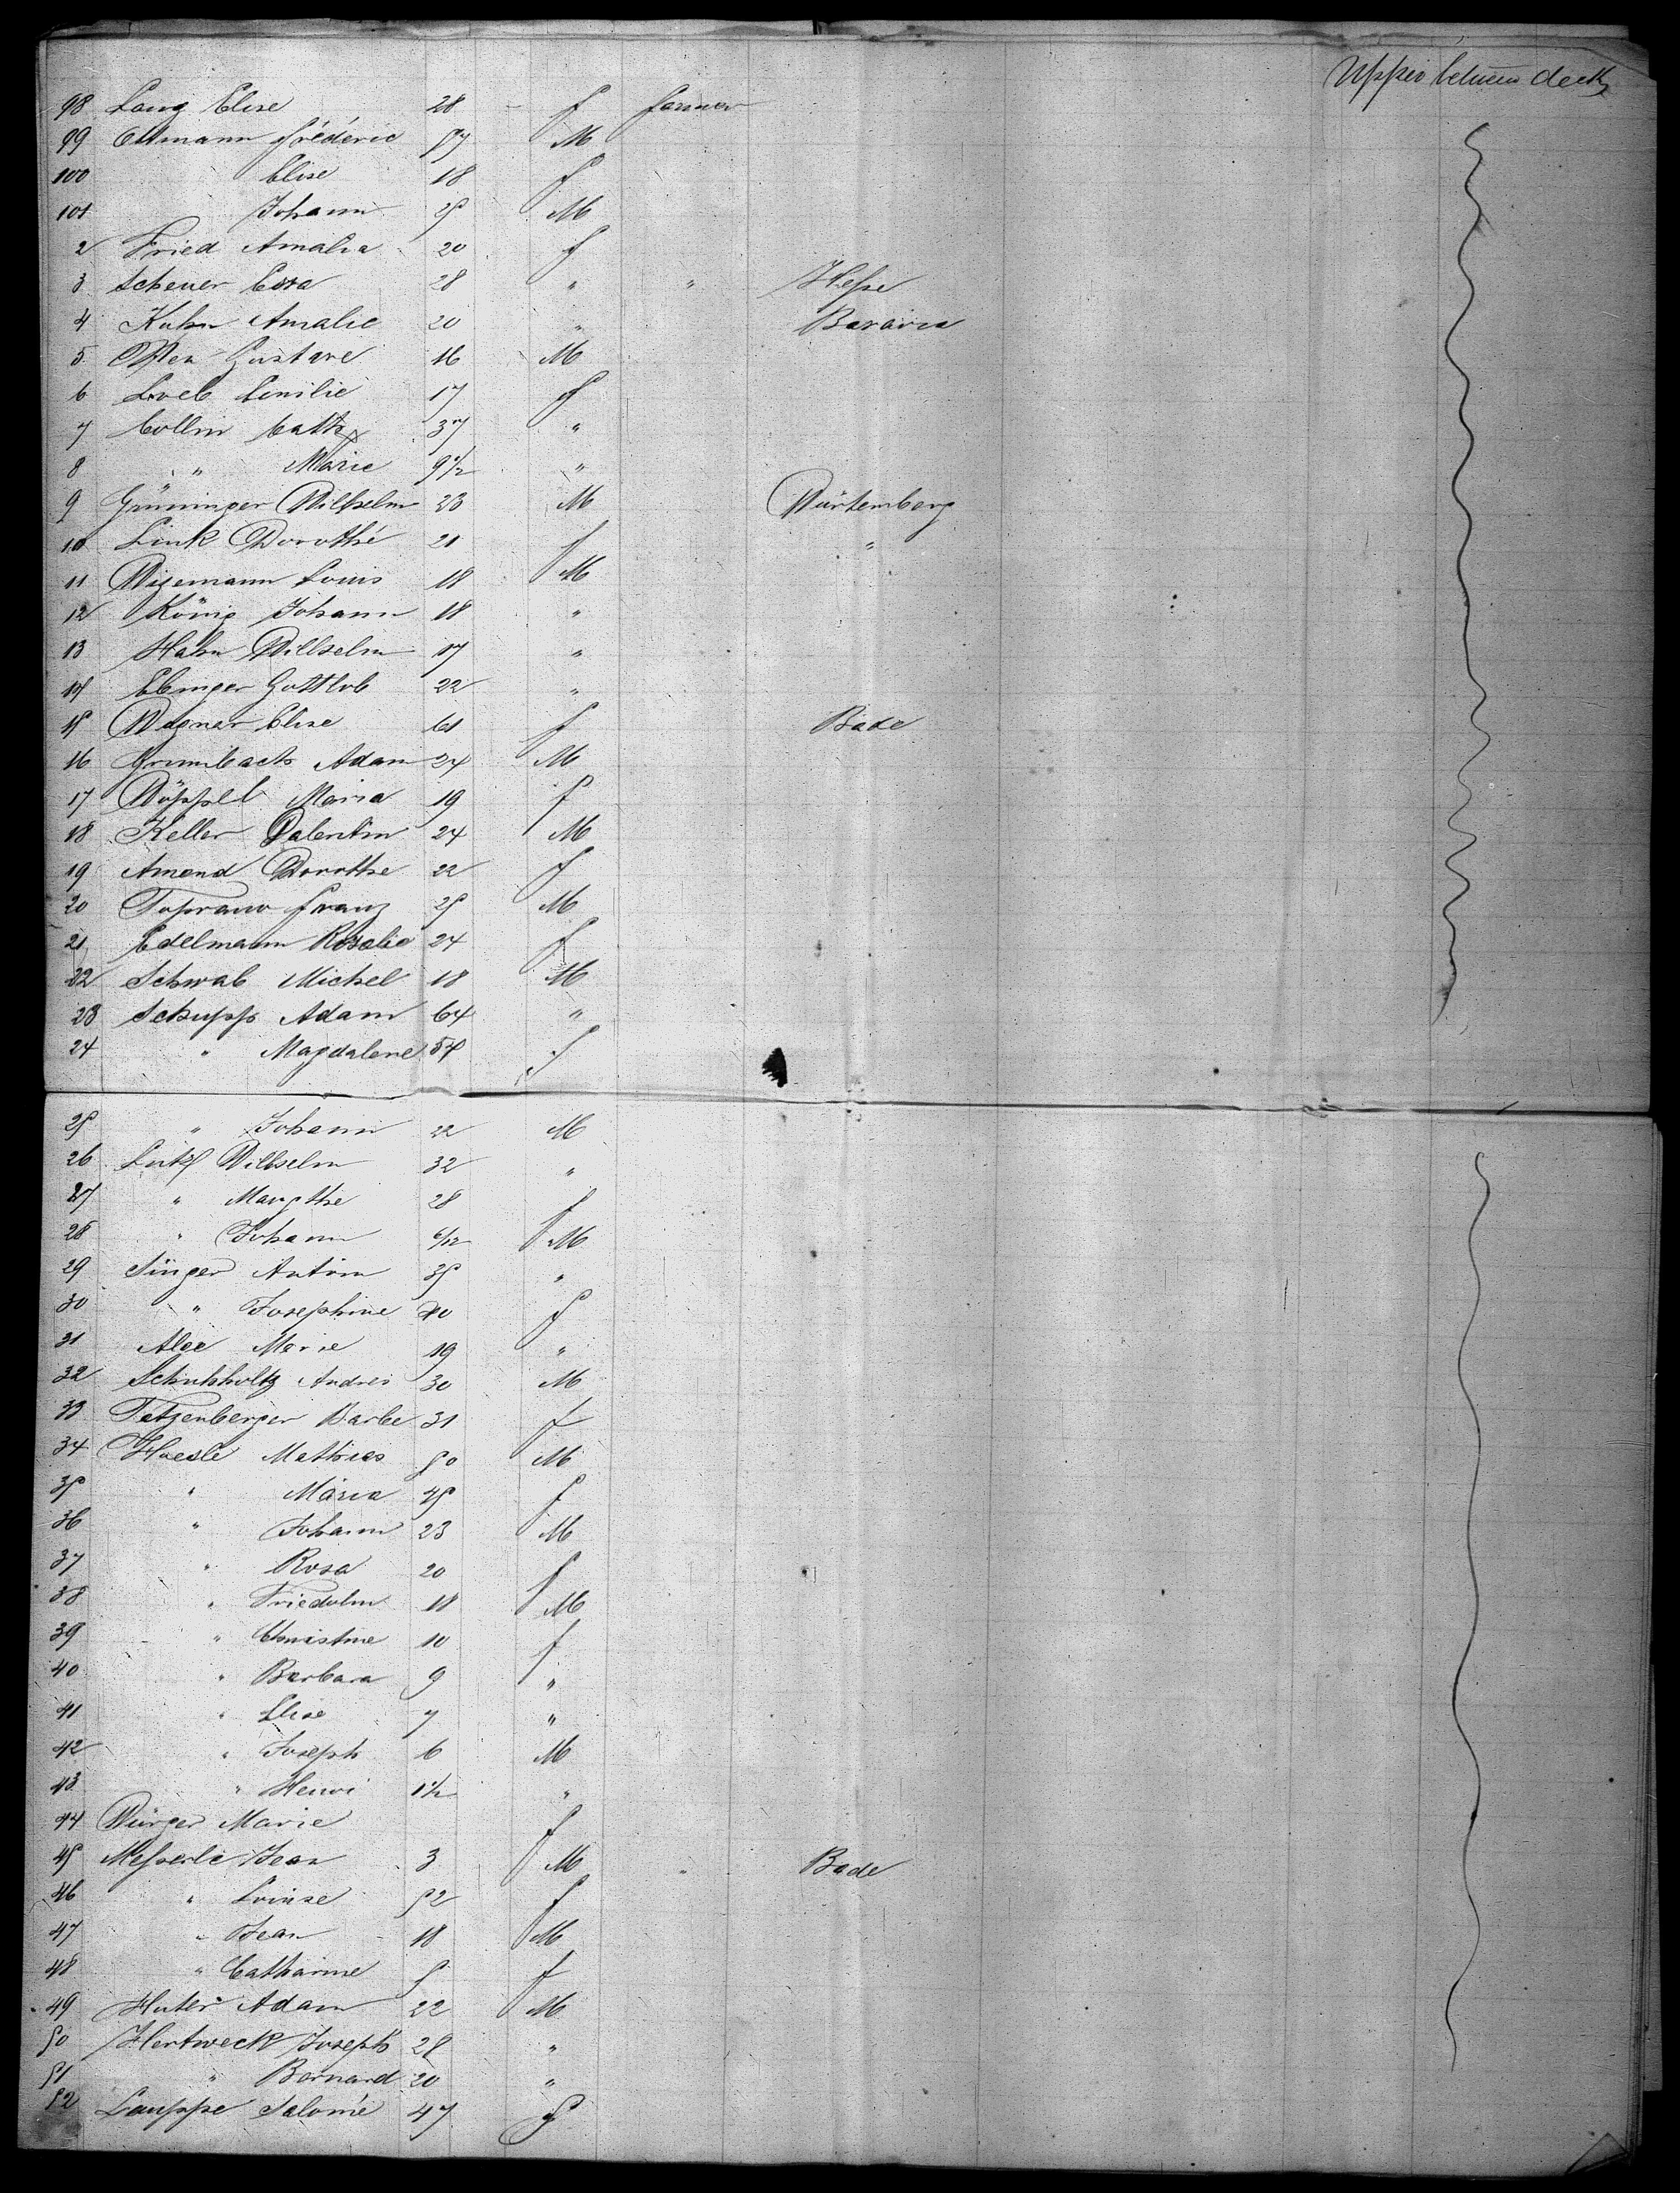 Upper between deck
98 Lang Elise 28 f farmer
99 Ettmann Fréderic 57 M
100 Elise 18 f
101 Johann 25 M
2 Fried Amalia 20 f
3 Scheuer 28 " " Hesse
4 Kuhn Amalie 20 " Bavaria
5 Gustave 16 M
6 Loeb Emilie 17 f
7 Collin Cath 37 "
8 " Marie 9 1/2 "
9 Grüninger Wilhelm 23 M Würtemberg
10 Link Dorothé 21 f "
11 Wizemann Louis 18 M
12 König Johann 18 "
13 Hahn Wilhelm 17 "
14 Ebinger Gottlob 22 "
15 Wagner Elise 61 f Bade
16 Grumbach Adam 24 M
17 Döppel Maria 19 f
18 Keller Valentin 24 M
19 Amend Dorothe 22 f
20 Toprano Franz 25 M
21 Edelmann Rosalie 24 f
22 Schwab Michel 18 M
23 Schupp Adam 64 "
24 " Magdalene 54 f
25 " Johann 22 M
26 Wilhelm 32 "
27 " Margthe 28 f
28 " Johann 6/12 M
29 Singer Anton 35 "
30 " Josephine 20 f
31 Marie 19 "
32 Schuhholtz Andres 30 M
33 Tetzenberger Barbe 31 f
34 Hoesle Mathias 50 M
35 " Maria 45 f
36 " Johann 23 M
37 " Rosa 20 f
38 " Friedolin 18 M
39 " Christine 10 f
40 " Barbara 9 "
41 " Elise 7 "
42 " Joseph 6 M
43 " Henri 1 1/2 "
44 Würger Marie f
45 Messerle Jean 3 M " Bade
46 " Louise 52 f
47 " Jean 18 M
48 " Catharine 5 f
49 Huter Adam 22 M
50 Hertweck Joseph 28 "
51 " Bernard 20 "
52 Lauppe Salomé 47 f